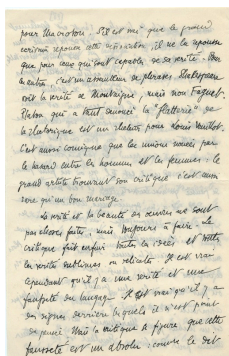 pour Macrobe. S'il est vrai que le grand
écrivain repousse cette                , il ne la repousse
que pour ceux qui sont capables de sa vérité. Pour
les autres, c'est un assembleur de phrases. Shakespeare
voit la vérité de Montaigne, mais non Faguet.
Platon qui a tant dénoncé la "flatterie" de
la rhétorique est un rhéteur pour Louis Veuillot.
C'est aussi comique que les unions nouées par
le hasard entre les hommes et les femmes : le
grand artiste trouvant son critique c'est aussi
rare qu'un bon mariage.
La vérité et la beauté des oeuvres ne sont
pas choses faites, mais toujours à faire. Le
critique fait enfin toutes les idées et toutes
les vérités sublimes ou délicates. Il est vrai
cependant qu'il y a une vérité et une
fausseté du langage. Il est vrai qu'il y a
des signes derrière lesquels il n'est point
de pensée. Mais la critique se figure que cette
fausseté est un absolu : comme le dit